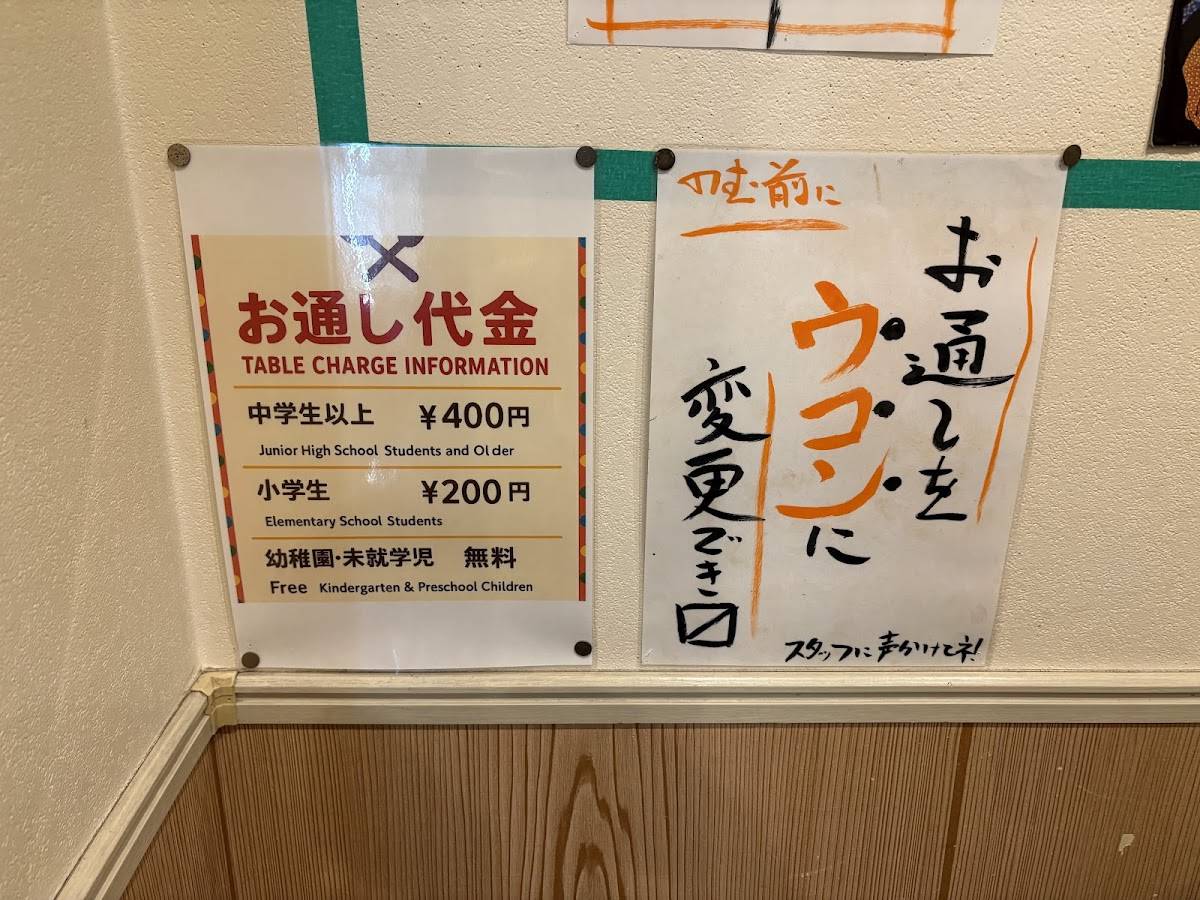 お通し代金
TABLE CHARGE INFORMATION
中学生以上 ¥400円
Junior High School Students and Older
小学生 ¥200円
Elementary School Students
幼稚園・未就学児 無料
Free Kindergarten & Preschool Children
のむ前に
お通しを
ウコンに
変更でき〼
スタッフに声かけてネ!